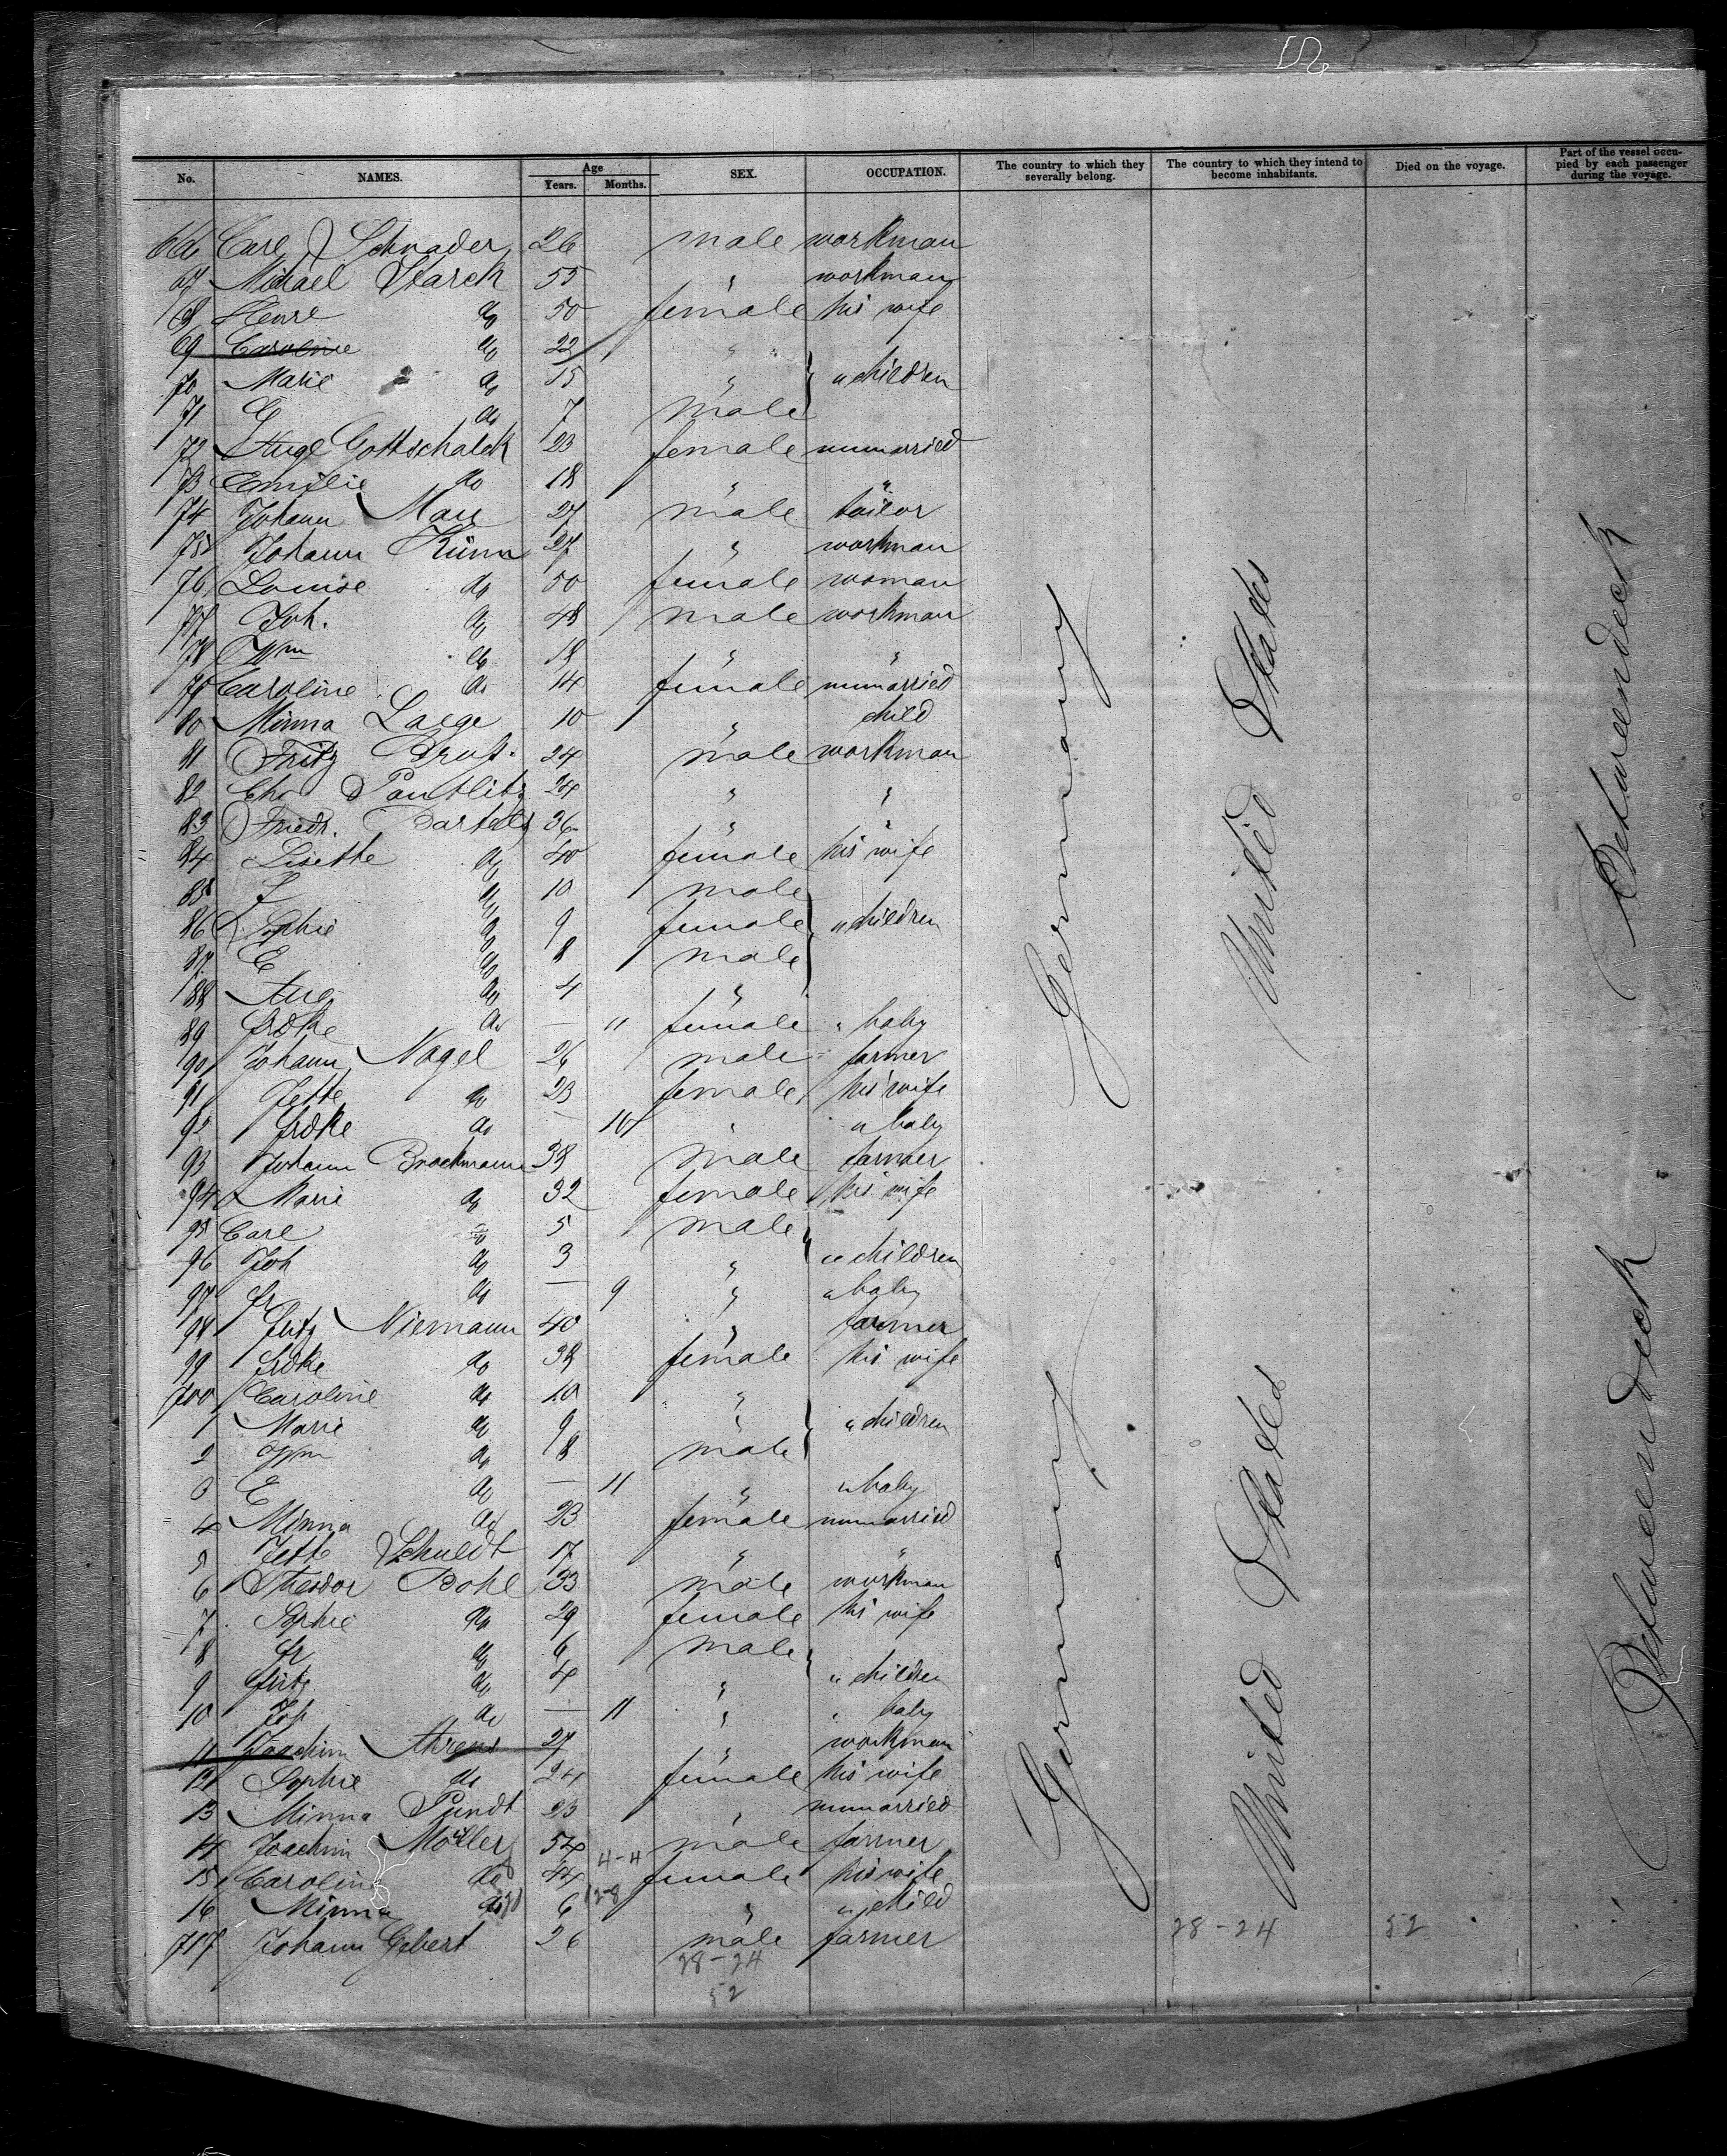 No. NAMES. Age Years. Months. SEX. OCCUPATION. The country to which they severally belong. The country to which they intend to become inhabitants. Died on the voyage. Part of the vessel occupied by each passenger during the voyage.
Carl Schrader 26 male workman
67 Michael Starck 55 " workman
68 do 50 female his wife
69 Caroline do 22 "
70 Marie do 15 " " children
71 do 7 male
72 Aug Gottschalck 23 female unmarried
73 Emilie do 18 " "
74 Johann 27 male tailor
75 Johann 27 " workman
76 Louise do 50 female woman
77 Joh. do 48 male workman
78 Wm do 18 " "
79 Caroline do 14 female unmarried
80 Minna Laege 10 " child
81 Fritz 24 male workman
82 Chr 24 " "
83 Friedr. Bartels 36 "
84 Lisette do 40 female his wife
85 do 10 male
86 Sophie do 9 female " children
87 E do 8 male
88 Aug do 4 "
89 Frdke do — 11 female " baby
90 Johann Nagel 26 male farmer
91 Jette do 23 female his wife
92 Frdke do — " " baby
93 Johann Brockmann 38 male farmer
94 Marie do 32 female his wife
95 Carl do 5 male
96 Joh do 3 " " children
97 Fr do — 9 " " baby
98 Fritz Niemann 40 " farmer
99 Frdke do 38 female his wife
700 Caroline do 10 "
1 Marie do 9 " " children
2 Wm do 8 male
3 E do — 11 " " baby
4 Minna do 23 female unmarried
5 Jette 17 " "
6 Theodor Bohl 33 male workman
7 Sophie do 29 female his wife
8 Fr do 6 male
9 Fritz do 4 " " children
10 Joh do — 11 " " baby
11 Joachim Ahrens 27 " workman
12 Sophie do 24 female his wife
13 Minna Pundt 23 " unmarried
14 Joachim Möller 54 male farmer
15 Caroline do 44 4-4 female his wife
16 Minna do 6 " " child
717 Johann Gebert 26 male farmer
28-24
52
28-24
52
Germany
Germany
United States
United States
Betweendeck
Betweendeck